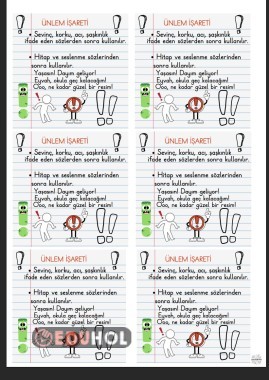 ÜNLEM İŞARETİ
• Sevinç, korku, acı, şaşkınlık
ifade eden sözlerden sonra kullanılır.
• Hitap ve seslenme sözlerinden
sonra kullanılır.
Yaşasın! Dayım geliyor!
Eyvah, okula geç kalacağım!
Ooo, ne kadar güzel bir resim!
ÜNLEM İŞARETİ
• Sevinç, korku, acı, şaşkınlık
ifade eden sözlerden sonra kullanılır.
• Hitap ve seslenme sözlerinden
sonra kullanılır.
Yaşasın! Dayım geliyor!
Eyvah, okula geç kalacağım!
Ooo, ne kadar güzel bir resim!
ÜNLEM İŞARETİ
• Sevinç, korku, acı, şaşkınlık
ifade eden sözlerden sonra kullanılır.
• Hitap ve seslenme sözlerinden
sonra kullanılır.
Yaşasın! Dayım geliyor!
Eyvah, okula geç kalacağım!
Ooo, ne kadar güzel bir resim!
ÜNLEM İŞARETİ
• Sevinç, korku, acı, şaşkınlık
ifade eden sözlerden sonra kullanılır.
• Hitap ve seslenme sözlerinden
sonra kullanılır.
Yaşasın! Dayım geliyor!
Eyvah, okula geç kalacağım!
Ooo, ne kadar güzel bir resim!
ÜNLEM İŞARETİ
• Sevinç, korku, acı, şaşkınlık
ifade eden sözlerden sonra kullanılır.
• Hitap ve seslenme sözlerinden
sonra kullanılır.
Yaşasın! Dayım geliyor!
Eyvah, okula geç kalacağım!
Ooo, ne kadar güzel bir resim!
ÜNLEM İŞARETİ
• Sevinç, korku, acı, şaşkınlık
ifade eden sözlerden sonra kullanılır.
• Hitap ve seslenme sözlerinden
sonra kullanılır.
Yaşasın! Dayım geliyor!
Eyvah, okula geç kalacağım!
Ooo, ne kadar güzel bir resim!
EDUHOL